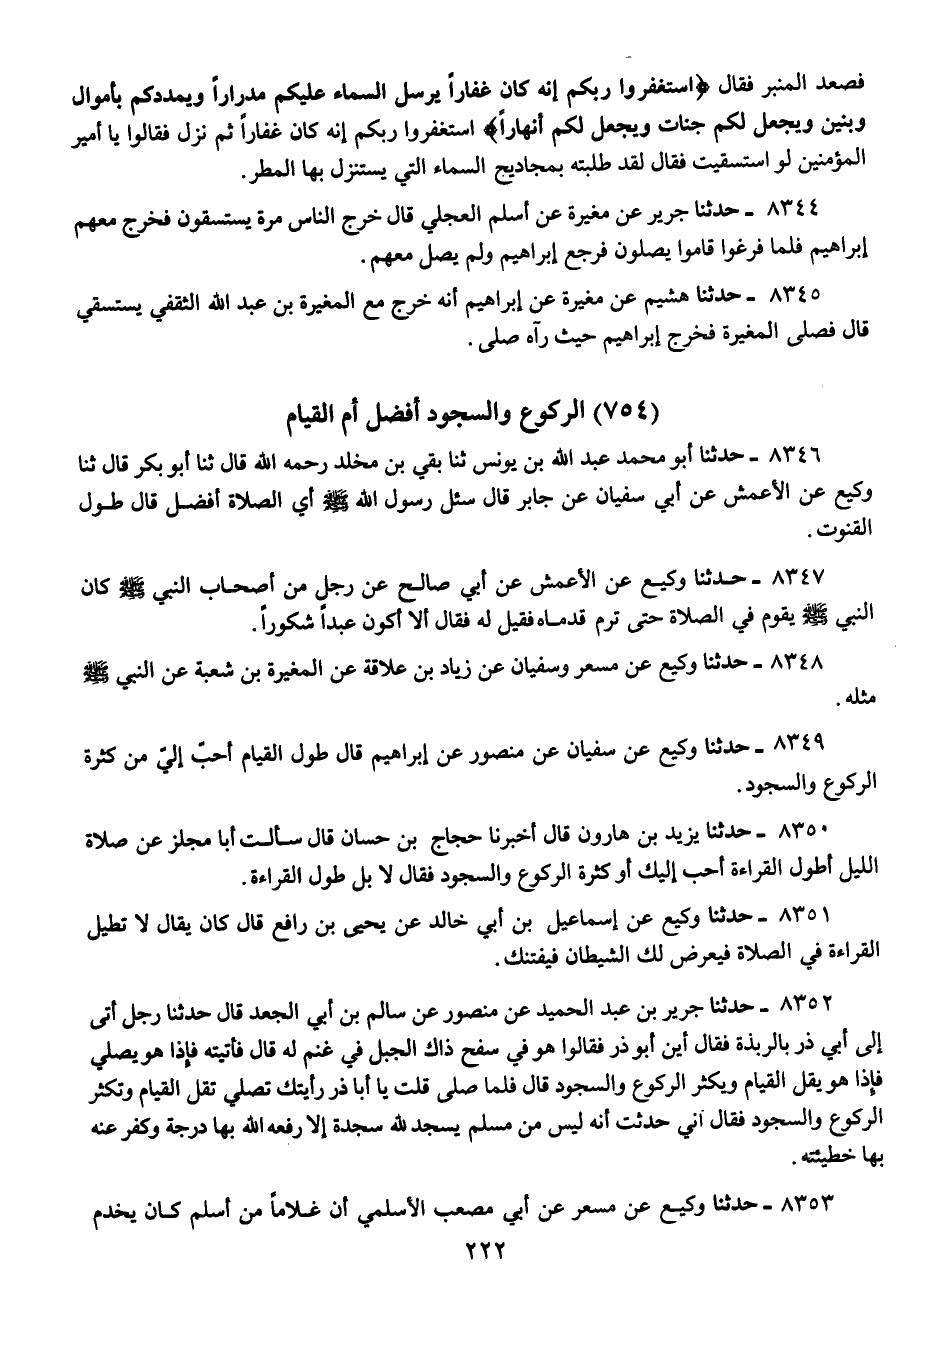 فصعد المنبر فقال ﴿استغفروا ربكم إنه كان غفاراً يرسل السماء عليكم مدراراً ويمددكم بأموال
وبنين ويجعل لكم جنات ويجعل لكم أنهاراً﴾ استغفروا ربكم إنه كان غفاراً ثم نزل فقالوا يا أمير
المؤمنين لو استسقيت فقال لقد طلبته بمجاديح السماء التي يستنزل بها المطر.
٨٣٤٤ ـ حدثنا جرير عن مغيرة عن أسلم العجلي قال خرج الناس مرة يستسقون فخرج معهم
إبراهيم فلما فرغوا قاموا يصلون فرجع إبراهيم ولم يصل معهم.
٨٣٤٥ ـ حدثنا هشيم عن مغيرة عن إبراهيم أنه خرج مع المغيرة بن عبد الله الثقفي يستسقي
قال فصلى المغيرة فخرج إبراهيم حيث رآه صلى.
(٧٥٤) الركوع والسجود أفضل أم القيام
٨٣٤٦ ـ حدثنا أبو محمد عبد الله بن يونس ثنا بقي بن مخلد رحمه الله قال ثنا أبو بكر قال ثنا
وكيع عن الأعمش عن أبي سفيان عن جابر قال سئل رسول الله ﷺ أي الصلاة أفضل قال طول
القنوت.
٨٣٤٧ ـ حدثنا وكيع عن الأعمش عن أبي صالح عن رجل من أصحاب النبي ﷺ كان
النبي ﷺ يقوم في الصلاة حتى ترم قدماه فقيل له فقال ألا أكون عبداً شكوراً.
٨٣٤٨ ـ حدثنا وكيع عن مسعر وسفيان عن زياد بن علاقة عن المغيرة بن شعبة عن النبي ﷺ
مثله.
٨٣٤٩ ـ حدثنا وكيع عن سفيان عن منصور عن إبراهيم قال طول القيام أحبّ إليّ من كثرة
الركوع والسجود.
٨٣٥٠ ـ حدثنا يزيد بن هارون قال أخبرنا حجاج بن حسان قال سألت أبا مجلز عن صلاة
الليل أطول القراءة أحب إليك أو كثرة الركوع والسجود فقال لا بل طول القراءة.
٨٣٥١ ـ حدثنا وكيع عن إسماعيل بن أبي خالد عن يحيى بن رافع قال كان يقال لا تطيل
القراءة في الصلاة فيعرض لك الشيطان فيفتنك.
٨٣٥٢ ـ حدثنا جرير بن عبد الحميد عن منصور عن سالم بن أبي الجعد قال حدثنا رجل أتى
إلى أبي ذر بالربذة فقال أين أبو ذر فقالوا هو في سفح ذاك الجبل في غنم له قال فأتيته فإذا هو يصلي
فإذا هو يقل القيام ويكثر الركوع والسجود قال فلما صلى قلت يا أبا ذر رأيتك تصلي تقل القيام وتكثر
الركوع والسجود فقال أني حدثت أنه ليس من مسلم يسجد لله سجدة إلا رفعه الله بها درجة وكفر عنه
بها خطيئته.
٨٣٥٣ ـ حدثنا وكيع عن مسعر عن أبي مصعب الأسلمي أن غلاماً من أسلم كان يخدم
٢٢٢